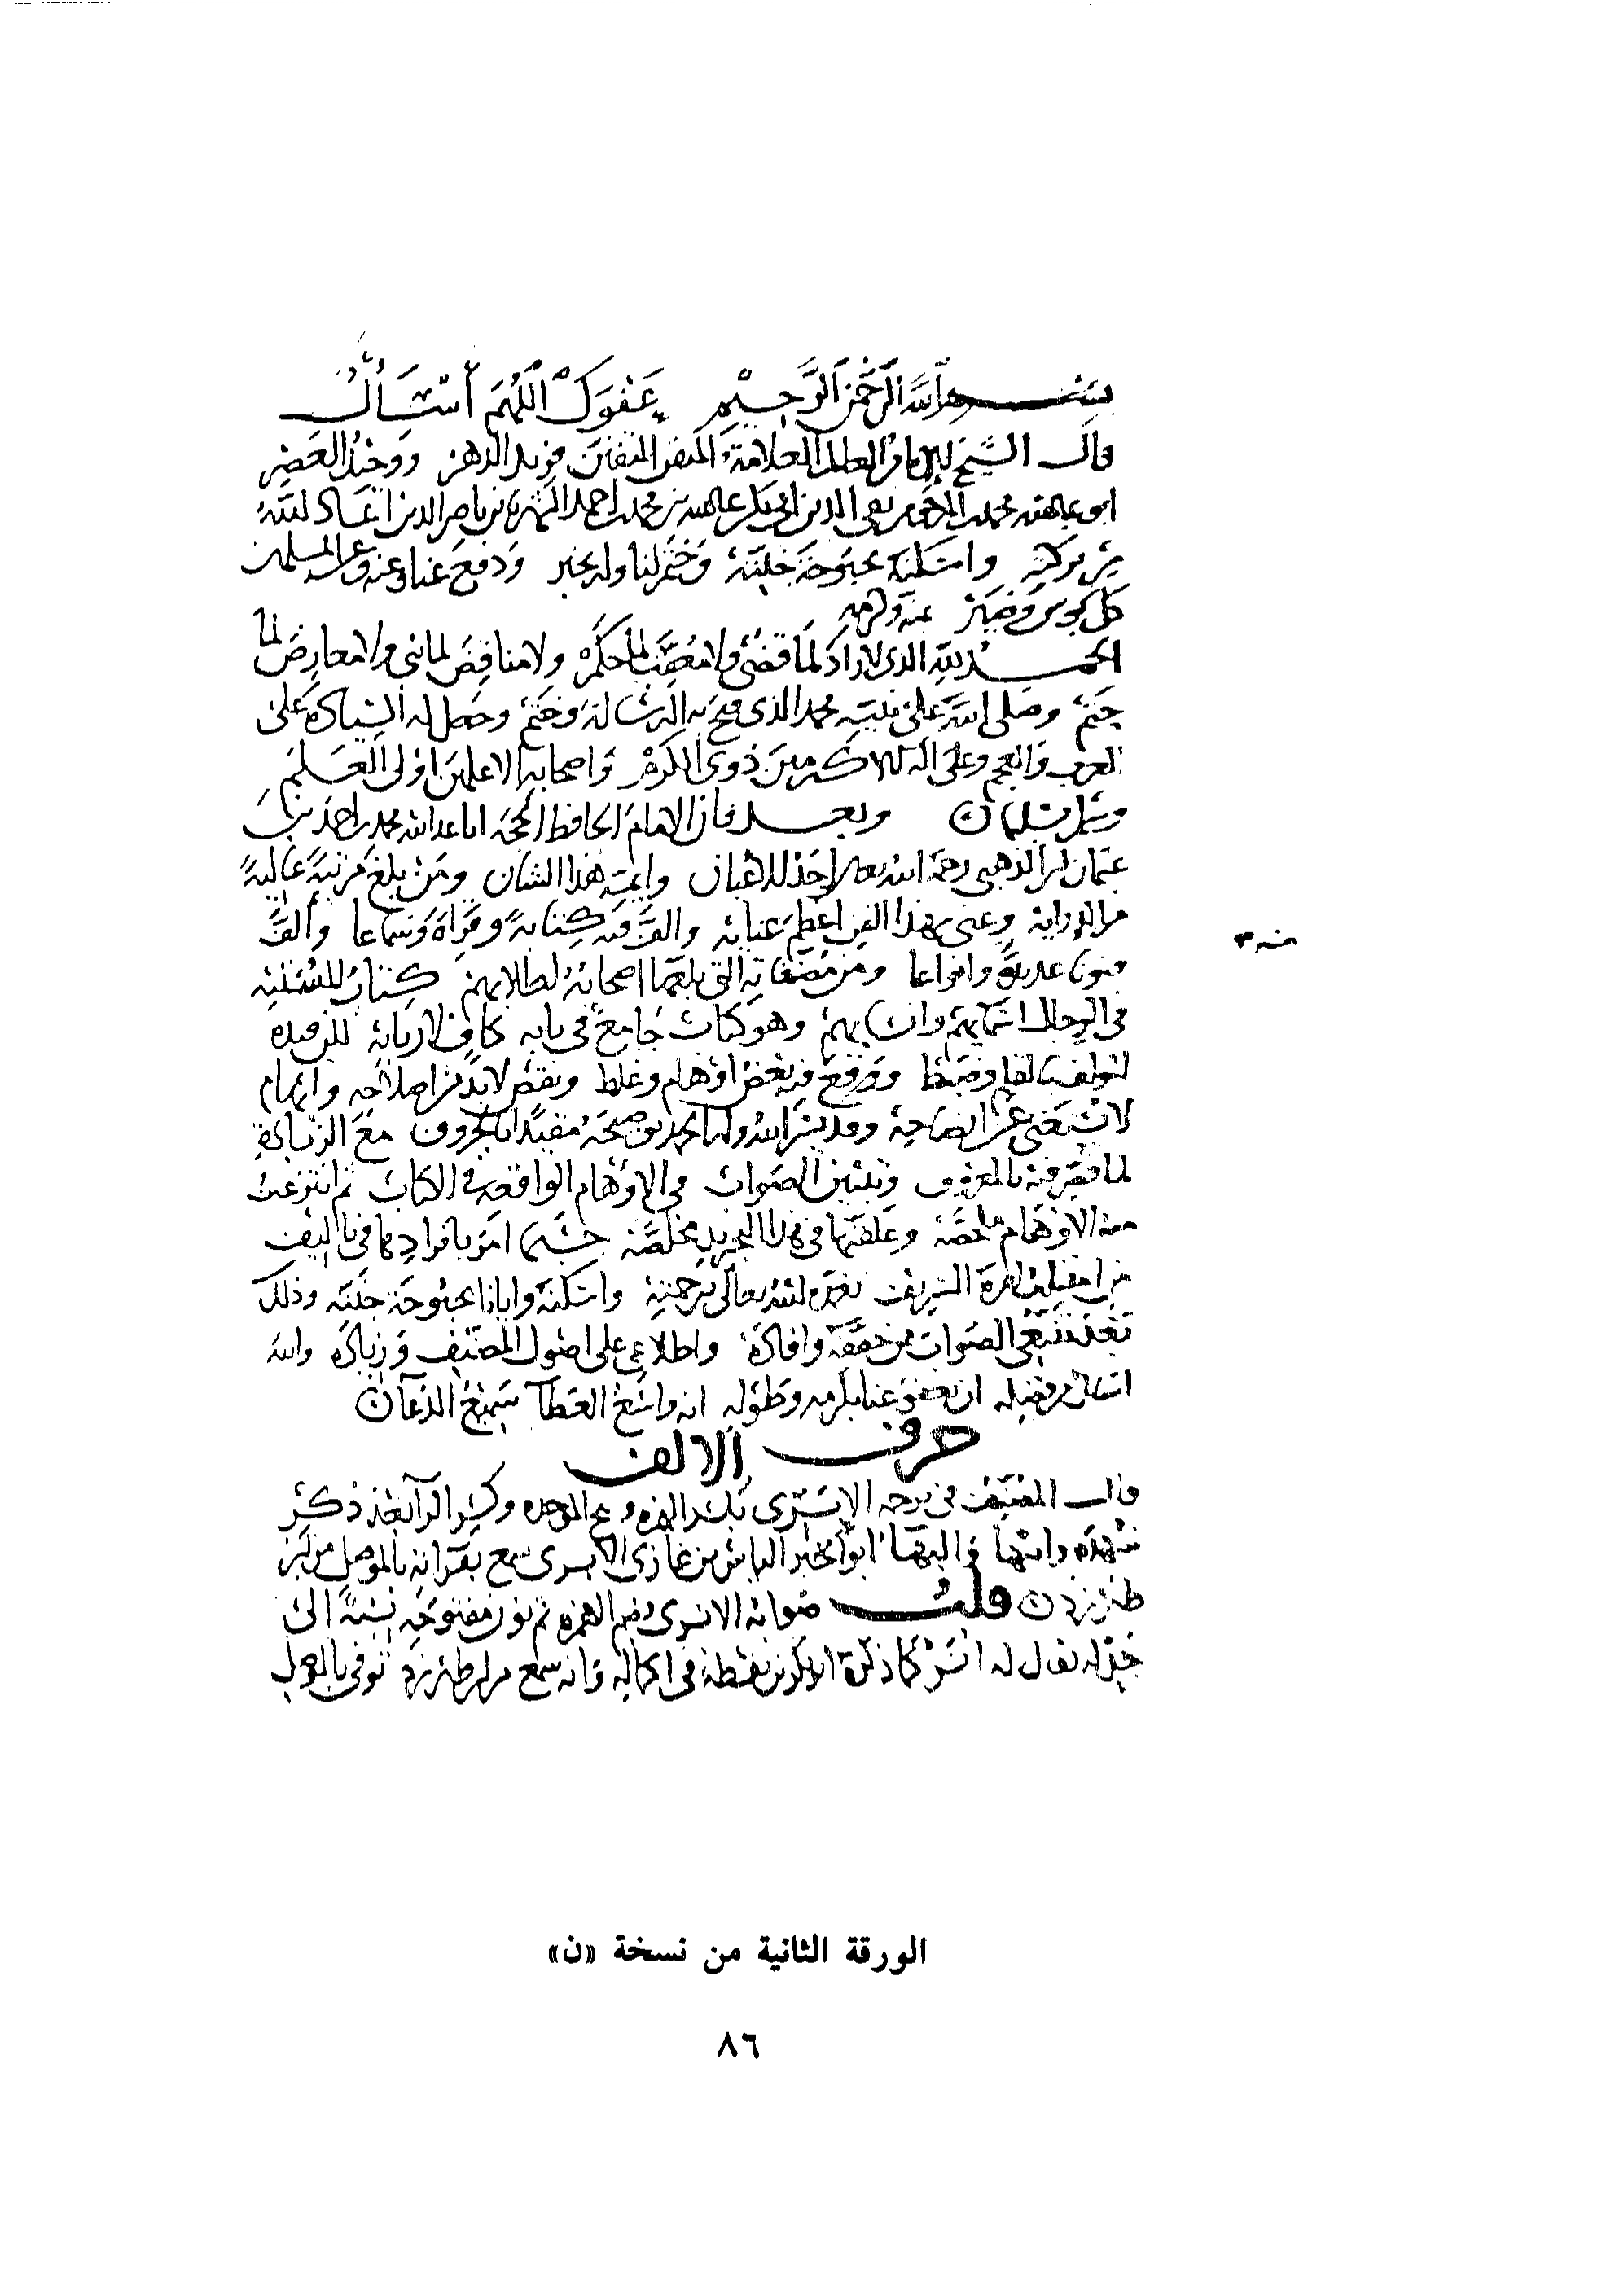 بسم الله الرحمن الرحيم عفوك اللهم أسأل
قال الشيخ الإمام العالم العلامة المتقن المتفنن فريد الدهر ووحيد العصر
ابو عبد الله محمد بن المرحوم تقي الدين ابي بكر عبد الله بن محمد بن احمد الشهير بابن ناصر الدين اعاد الله
من بركته واسكنه بحبوحة جنته وختم لنا وله بخير ودفع عنا وعنه وعن المسلمين
كل بوس وضير بمنه وكرمه
الحمد لله الذي لا راد لما قضى ولا معقب لما حكم ولا مناقض لما بنى ولا معارض لما
حتم وصلى الله على نبيه محمد الذي فتح به الرسالة وختم وجعل له السيادة على
العرب والعجم وعلى اله الاكرمين ذوي الكرم واصحابه الاعلمين اولي العلم
وسلم تسليما ن وبعد فان الامام الحافظ الحجة ابا عبد الله محمد بن احمد بن
عثمان ابن الذهبي رحمه الله تعالى احد الاعيان وايمة هذا الشان ومن بلغ مرتبة عالية
من الدراية وعني بهذا الفن اعظم عنايه والف فيه كتابة وقراة وسماعا والف
منه ٣
فنونا عديدة وانواعا ومن مصنفاته التي بلغها اصحابه لطلابهم كتاب المشتبه
في الرجال اسمايهم وانسابهم وهو كتاب جامع في بابه كاف لاربابه لكن قيده
لمولفه بالقلم وضبط ووقع فيه بعض اوهام وغلط ونقص لابد من اصلاحه وابهام
لا يستغنى عن ايضاحه وقد يسر الله وله الحمد توضيحه مقيدا بالحروف مع الزيادة
لما قصر فيه بالمعروف وتبيين الصواب في الاوهام الواقعة في الكتاب ثم انتزعت
منه الاوهام ملخصة وعلقتها في هذا التجريد مخلصة حسبما امر بافرادها في تاليف
من امتثلت امره الشريف تغمده الله تعالى برحمته واسكنه وايانا بحبوحة جنته وذلك
بعد تتبعي الصواب ممن حققه وافاده واطلاعي على اصول المصنف وزياده والله
اسال من فضله ان يعفو عنا بكرمه وطوله انه واسع العطا سميع الدعا ن
حرف الالف
قال المصنف في ترجمة الابري بكسر الهمزة وفتح الموحدة وكسر الرا بعد ذكر
شهدة وابنها ابو الخير الياس بن غازي الابري سمع بقراته بالموصل من ابن
طبرزد ن قلت صوابه الانري بضم الهمزة ثم نون مفتوحة نسبة الى
جد له يقال له انر كما ذكره ابو بكر بن نقطة في اكماله وانه سمع من ابن طبرزد توفي بالموصل
الورقة الثانية من نسخة «ن»
٨٦